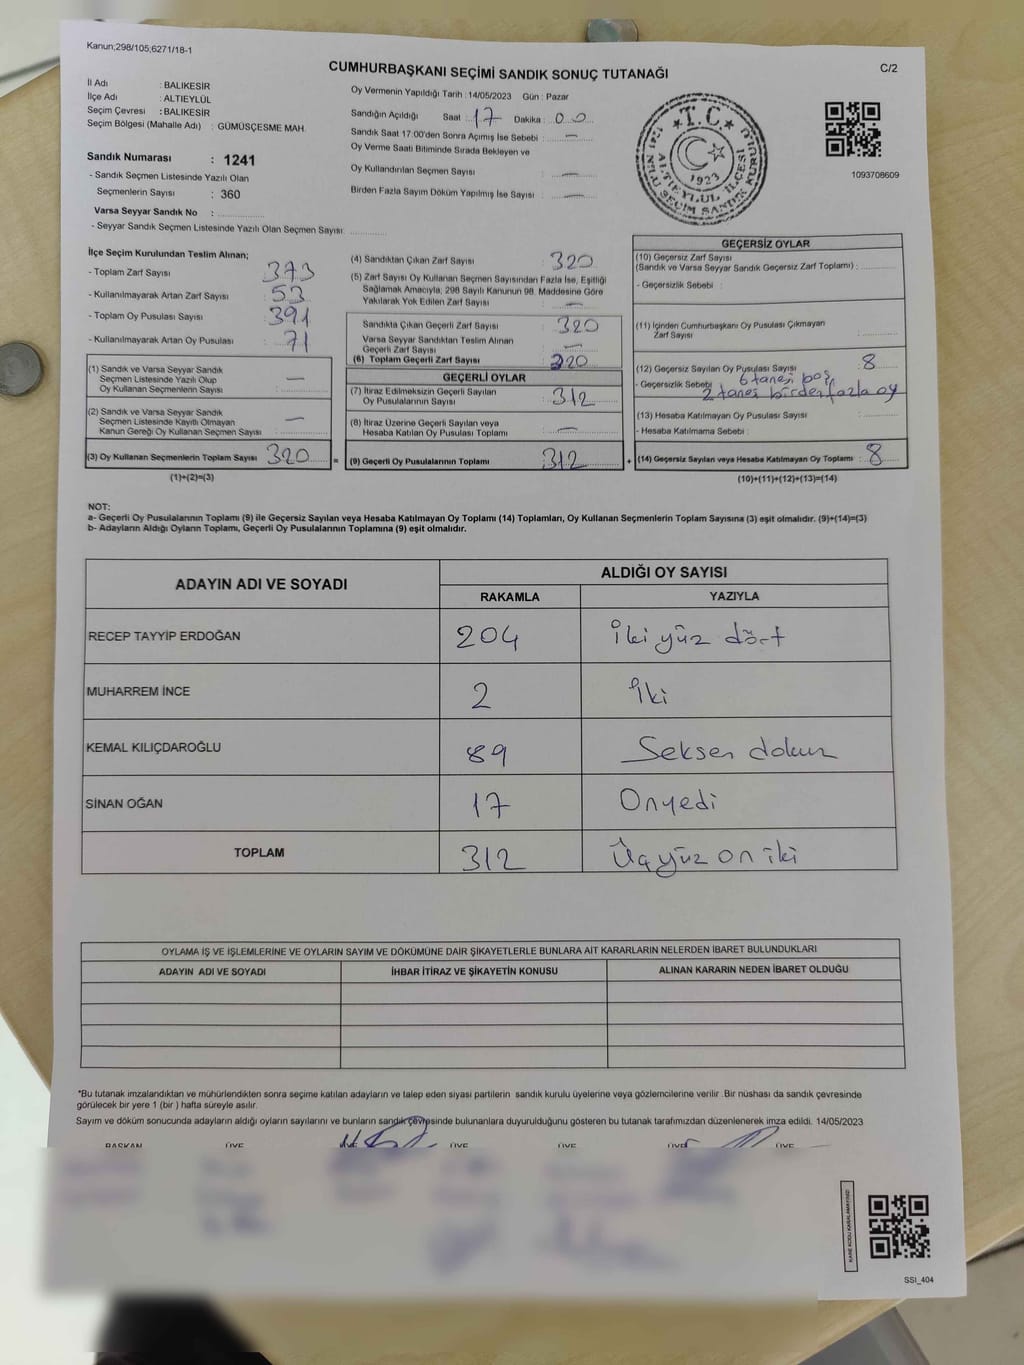 Kanun;298/105;6271/18-1
CUMHURBAŞKANI SEÇİMİ SANDIK SONUÇ TUTANAĞI
C/2
İl Adı : BALIKESİR
İlçe Adı : ALTIEYLÜL
Seçim Çevresi : BALIKESİR
Seçim Bölgesi (Mahalle Adı) : GÜMÜŞÇEŞME MAH.
Sandık Numarası : 1241
- Sandık Seçmen Listesinde Yazılı Olan
Seçmenlerin Sayısı : 360
Varsa Seyyar Sandık No :
- Seyyar Sandık Seçmen Listesinde Yazılı Olan Seçmen Sayısı:
Oy Vermenin Yapıldığı Tarih : 14/05/2023 Gün : Pazar
Sandığın Açıldığı Saat : 17 Dakika : 00
Sandık Saat 17:00'den Sonra Açımış İse Sebebi : —
Oy Verme Saati Bitiminde Sırada Bekleyen ve
Oy Kullandırılan Seçmen Sayısı : —
Birden Fazla Sayım Döküm Yapılmış İse Sayısı : —
T.C.
1923
1241 NOLU SEÇİM SANDIK KURULU
ALTIEYLÜL İLÇESİ
1093708609
İlçe Seçim Kurulundan Teslim Alınan;
- Toplam Zarf Sayısı 373
- Kullanılmayarak Artan Zarf Sayısı : 53
- Toplam Oy Pusulası Sayısı 391
- Kullanılmayarak Artan Oy Pusulası : 71
(1) Sandık ve Varsa Seyyar Sandık
Seçmen Listesinde Yazılı Olup
Oy Kullanan Seçmenlerin Sayısı : —
(2) Sandık ve Varsa Seyyar Sandık
Seçmen Listesinde Kayıtlı Olmayan
Kanun Gereği Oy Kullanan Seçmen Sayısı : —
(3) Oy Kullanan Seçmenlerin Toplam Sayısı : 320
(1)+(2)=(3)
(4) Sandıktan Çıkan Zarf Sayısı : 320
(5) Zarf Sayısı Oy Kullanan Seçmen Sayısından Fazla İse, Eşitliği
Sağlamak Amacıyla; 298 Sayılı Kanunun 98. Maddesine Göre
Yakılarak Yok Edilen Zarf Sayısı : —
Sandıkta Çıkan Geçerli Zarf Sayısı : 320
Varsa Seyyar Sandıktan Teslim Alınan
Geçerli Zarf Sayısı : —
(6) Toplam Geçerli Zarf Sayısı : 320
GEÇERLİ OYLAR
(7) İtiraz Edilmeksizin Geçerli Sayılan
Oy Pusulalarının Sayısı : 312
(8) İtiraz Üzerine Geçerli Sayılan veya
Hesaba Katılan Oy Pusulası Toplamı : —
= (9) Geçerli Oy Pusulalarının Toplamı : 312
GEÇERSİZ OYLAR
(10) Geçersiz Zarf Sayısı
(Sandık ve Varsa Seyyar Sandık Geçersiz Zarf Toplamı) :
- Geçersizlik Sebebi :
(11) İçinden Cumhurbaşkanı Oy Pusulası Çıkmayan
Zarf Sayısı :
(12) Geçersiz Sayılan Oy Pusulası Sayısı : 8
- Geçersizlik Sebebi : 6 tanesi boş
2 tanesi birden fazla oy
(13) Hesaba Katılmayan Oy Pusulası Sayısı :
- Hesaba Katılmama Sebebi :
+ (14) Geçersiz Sayılan veya Hesaba Katılmayan Oy Toplamı : 8
(10)+(11)+(12)+(13)=(14)
NOT:
a- Geçerli Oy Pusulalarının Toplamı (9) ile Geçersiz Sayılan veya Hesaba Katılmayan Oy Toplamı (14) Toplamları, Oy Kullanan Seçmenlerin Toplam Sayısına (3) eşit olmalıdır. (9)+(14)=(3)
b- Adayların Aldığı Oyların Toplamı, Geçerli Oy Pusulalarının Toplamına (9) eşit olmalıdır.
ADAYIN ADI VE SOYADI
ALDIĞI OY SAYISI
RAKAMLA YAZIYLA
RECEP TAYYİP ERDOĞAN 204 İki yüz dört
MUHARREM İNCE 2 İki
KEMAL KILIÇDAROĞLU 89 Seksen dokuz
SİNAN OĞAN 17 Onyedi
TOPLAM 312 Üçyüz on iki
OYLAMA İŞ VE İŞLEMLERİNE VE OYLARIN SAYIM VE DÖKÜMÜNE DAİR ŞİKAYETLERLE BUNLARA AİT KARARLARIN NELERDEN İBARET BULUNDUKLARI
ADAYIN ADI VE SOYADI İHBAR İTİRAZ VE ŞİKAYETİN KONUSU ALINAN KARARIN NEDEN İBARET OLDUĞU
*Bu tutanak imzalandıktan ve mühürlendikten sonra seçime katılan adayların ve talep eden siyasi partilerin sandık kurulu üyelerine veya gözlemcilerine verilir. Bir nüshası da sandık çevresinde
görülecek bir yere 1 (bir ) hafta süreyle asılır.
Sayım ve döküm sonucunda adayların aldığı oyların sayılarını ve bunların sandık çevresinde bulunanlara duyurulduğunu gösteren bu tutanak tarafımızdan düzenlenerek imza edildi. 14/05/2023
BAŞKAN ÜYE ÜYE ÜYE ÜYE ÜYE ÜYE
KARE KODU KARALAMAYINIZ!
SSI_404